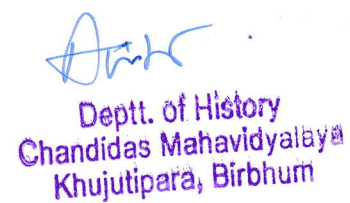 Deptt. of History
Chandidas Mahavidyalaya
Khujutipara, Birbhum